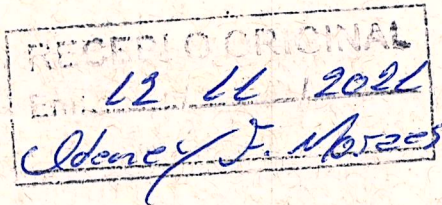 RECEBI O ORIGINAL
Em 12 / 11 / 2021
Odeney F. Moraes